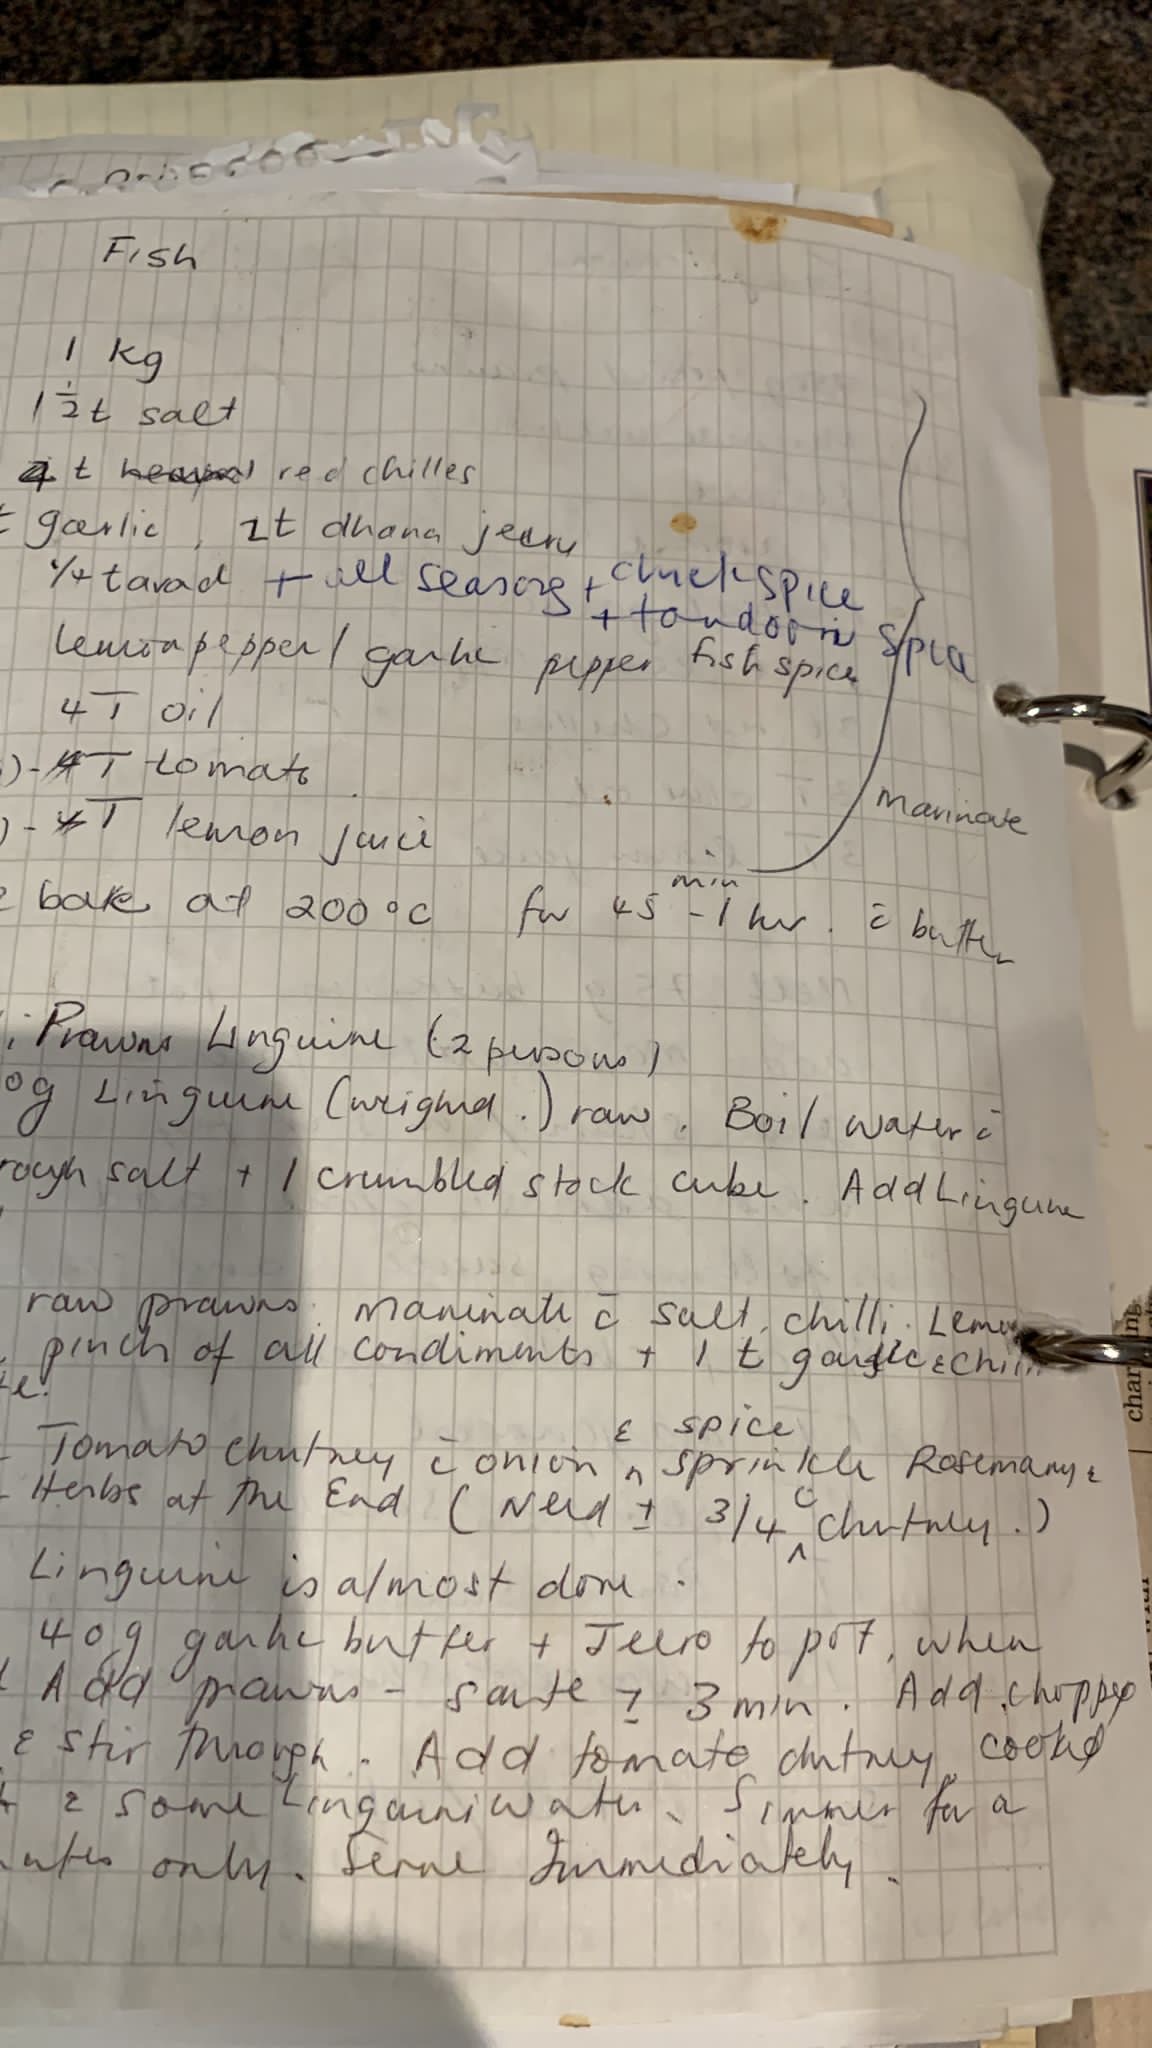 Fish
1 kg
1 1/2 t salt
4 t red chilles
t garlic, 2t dhana jeeru
1/4 t arad + all seasong + chick spice
+ tandoori spice
lemonpepper / garlic pepper fish spice
4T oil
)- T tomato
)- T lemon juice
Marinate
min
bake at 200°c for 45 - 1 hr. c̄ butter
: Prawns Linguine (2 persons)
0g Linguine (weighed.) raw. Boil water c̄
rough salt + 1 crumbled stock cube. Add Linguine
raw prawns. Marinate c̄ salt, chilli, Lemon
pinch of all condiments + 1 t garlic & chilli
te.
& spice
- Tomato chutney c̄ onion ^ sprinkle Rosemary &
- Herbs at the End (Need ± 3/4 c chutney.)
Linguine is almost done.
40g garlic butter + Jeero to pot, when
Add prawns - saute ± 3 min. Add chopped
& stir through. Add tomato chutney, cooked
& some Linguini water. Simmer for a
nutes only. Serve Immediately.